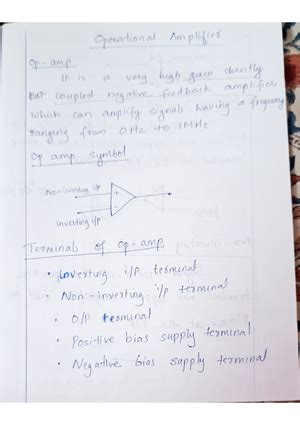 Operational Amplifier
Op-amp
It is a very high gain directly
coupled negative feedback amplifier
which can amplify signals having a frequency
ranging from 0Hz to 1MHz
Op amp symbol
Non inverting i/p
+
-
Inverting i/p
Terminals of Op-amp
• Inverting i/p terminal
• Non-inverting i/p terminal
• O/P terminal
• Positive bias supply terminal
• Negative bias supply terminal